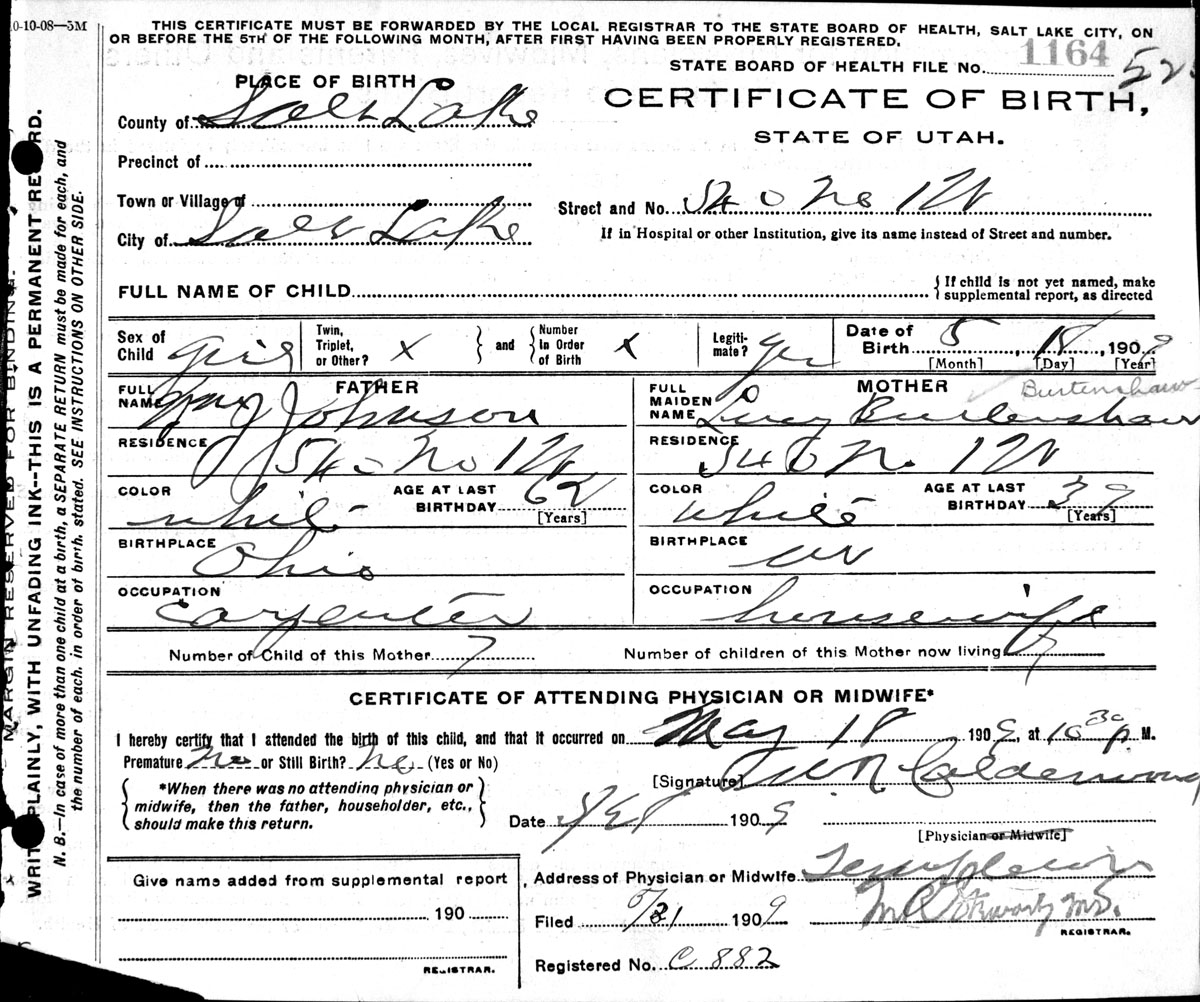 0-10-08—5M
THIS CERTIFICATE MUST BE FORWARDED BY THE LOCAL REGISTRAR TO THE STATE BOARD OF HEALTH, SALT LAKE CITY, ON
OR BEFORE THE 5TH OF THE FOLLOWING MONTH, AFTER FIRST HAVING BEEN PROPERLY REGISTERED.
STATE BOARD OF HEALTH FILE No. 1164 52
PLACE OF BIRTH
CERTIFICATE OF BIRTH,
STATE OF UTAH.
County of Salt Lake
Precinct of
Town or Village of
Street and No. 540 No 1 W
City of Salt Lake
If in Hospital or other Institution, give its name instead of Street and number.
FULL NAME OF CHILD
{ If child is not yet named, make
supplemental report, as directed
Sex of Child girl
Twin, Triplet, or Other? x
and
Number In Order of Birth x
Legiti- mate? yes
Date of Birth 5, 18, 1909
[Month] [Day] [Year]
FATHER
FULL NAME Johnson
RESIDENCE 540 No 1 W
COLOR white
AGE AT LAST BIRTHDAY 62
[Years]
BIRTHPLACE Ohio
OCCUPATION carpenter
MOTHER
Burtenshaw
FULL MAIDEN NAME Lucy Burtenshaw
RESIDENCE 540 No 1 W
COLOR white
AGE AT LAST BIRTHDAY 39
[Years]
BIRTHPLACE
OCCUPATION housewife
Number of Child of this Mother 7
Number of children of this Mother now living 7
CERTIFICATE OF ATTENDING PHYSICIAN OR MIDWIFE*
I hereby certify that I attended the birth of this child, and that it occurred on May 18 1909, at 10 30 p. M.
Premature No or Still Birth? No (Yes or No)
[Signature] Calderwood
*When there was no attending physician or
midwife, then the father, householder, etc.,
should make this return.
Date 1909
[Physician or Midwife]
Give name added from supplemental report
190
REGISTRAR.
Address of Physician or Midwife Templeton
Filed 5/21 1909
M.D.
REGISTRAR.
Registered No. C 882
MARGIN RESERVED FOR BINDING.
WRITE PLAINLY, WITH UNFADING INK--THIS IS A PERMANENT RECORD.
N. B.—In case of more than one child at a birth, a SEPARATE RETURN must be made for each, and
the number of each, in order of birth, stated. SEE INSTRUCTIONS ON OTHER SIDE.